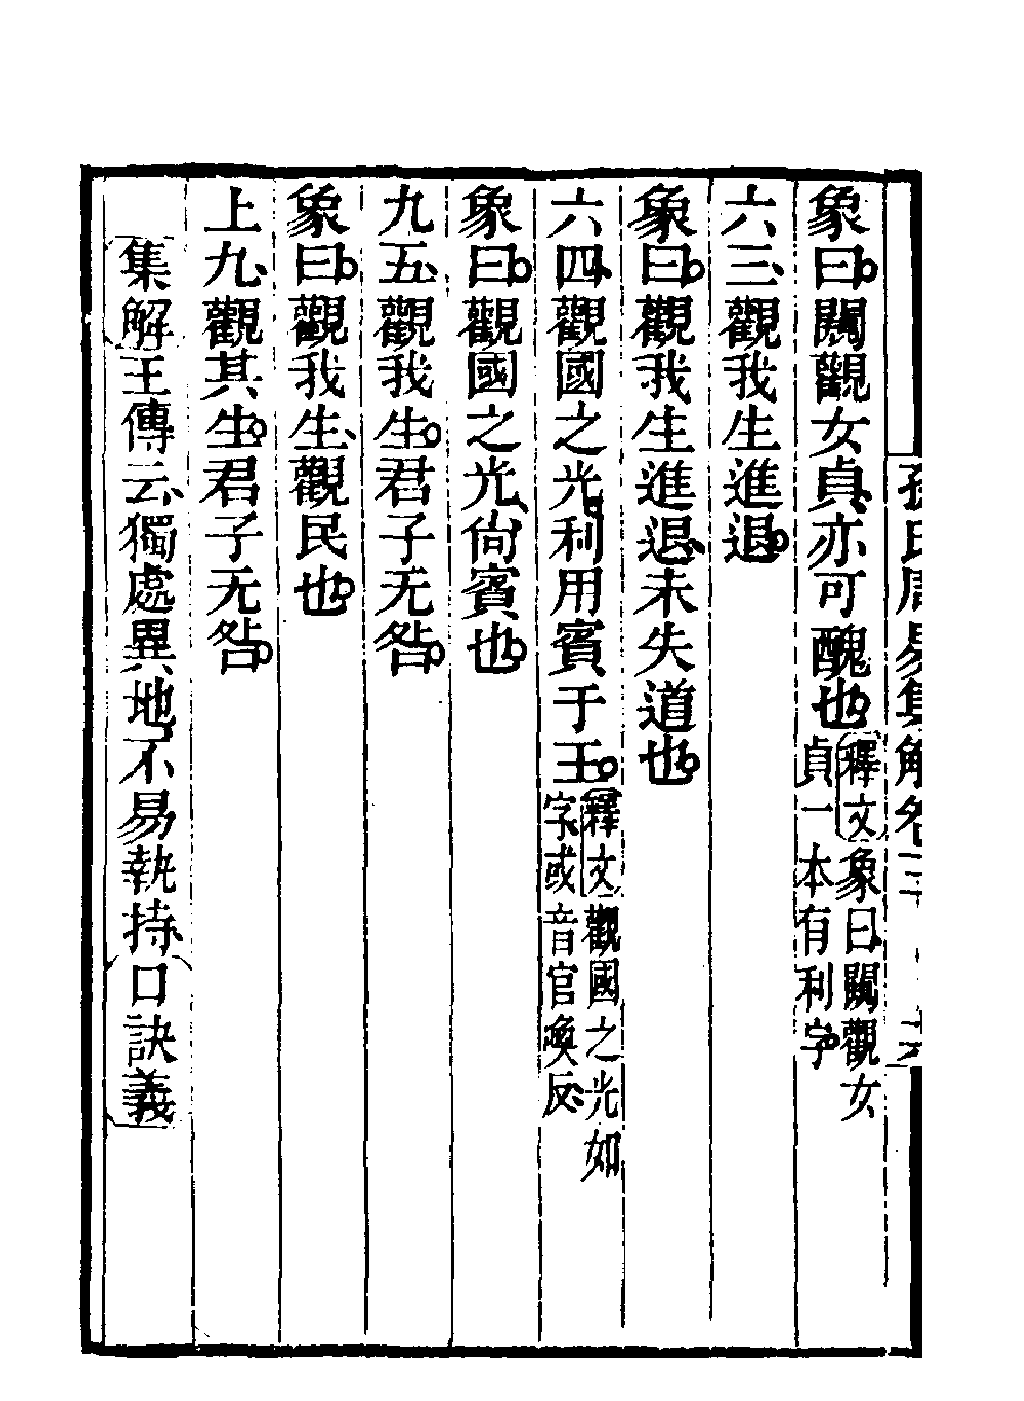 孫氏周易集解卷三 六
象曰。闚觀女貞、亦可醜也。釋文象曰、闚觀女
貞一本有利字。
六三、觀我生進退。
象曰。觀我生進退、未失道也。
六四、觀國之光、利用賓于王。釋文觀國之光如
字或音官喚反、
象曰。觀國之光、尙賓也。
九五、觀我生。君子无咎。
象曰。觀我生、觀民也。
上九、觀其生。君子无咎。
集解王傳云、獨處異地、不易執持、口訣義